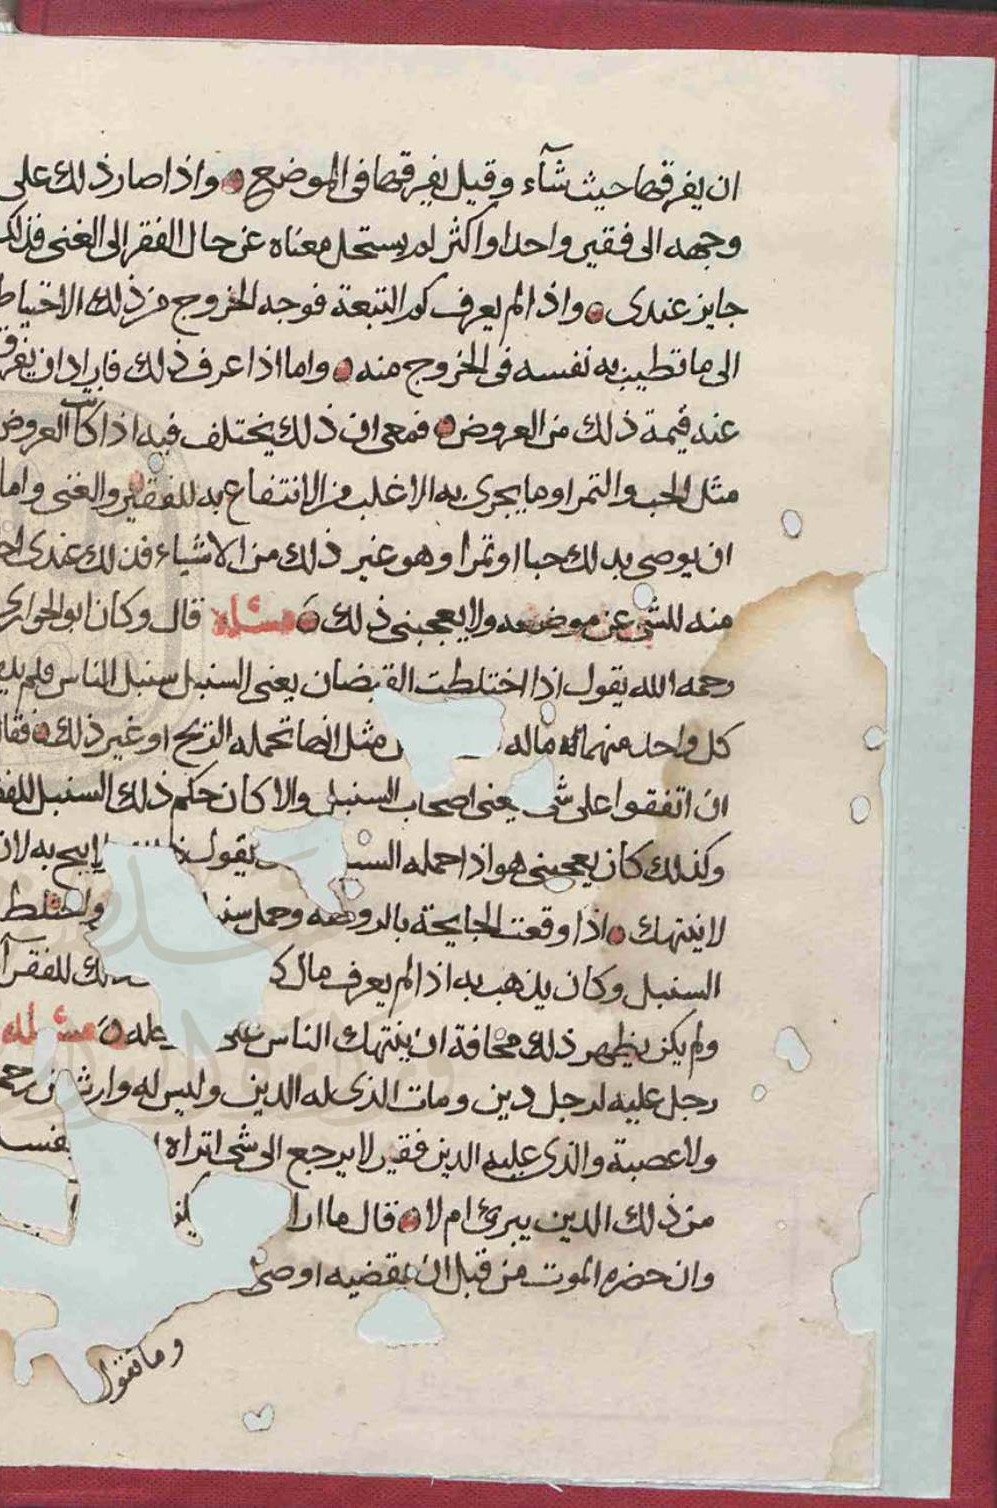 ان يفرقها حيث شآء وقيل يفرقها في الموضع واذا صار ذلك على
وجهه الى فقير واحد او اكثر لم يستحل معناه عن حال الفقر الى الغنى فذلك
جايز عندى واذا لم يعرف كم التبعة فوجه الخروج من ذلك الاحتياط
الى ما تطيب به نفسه في الخروج منه واما اذا عرف ذلك فاراد ان يفرق
عنه قيمة ذلك من العروض فمعى ان ذلك يختلف فيه اذا كانت العروض
مثل الحب والتمر او ما يجرى به الاغلب من الانتفاع به للفقير والغنى واما
ان يوصى بذلك حبا او تمرا وهو غير ذلك من الاشياء فذلك عندى
منه للشى عن موضعه ولا يعجبنى ذلك مسئلة قال وكان ابو الحوارى
رحمه الله يقول اذا اختلطت القبضان يعنى السنبل سنبل الناس فلم
كل واحد منهم ماله مثل انها تحمله الريح او غير ذلك فقال
ان اتفقوا على شى يعنى اصحاب السنبل والا كان حكم ذلك السنبل
وكذلك كان يعجبنى هو اذا حمله يقول لا يبح به لان
لا ينتهك اذا وقعت الجايحة بالدوهه وحمل واختلط
السنبل وكان يذهب به اذا لم يعرف مال للفقرآ
ولم يكن يظهر ذلك مخافة ان ينتهك الناس على مسئلة
رجل عليه لرجل دين ومات الذى له الدين وليس له وارث من
ولا عصبة والذى عليه الدين فقير لا يرجع الى شى اتراه
من ذلك الدين يبرئ ام لا قال ما
وان حضره الموت من قبل ان يقضيه اوصى
وما تقول